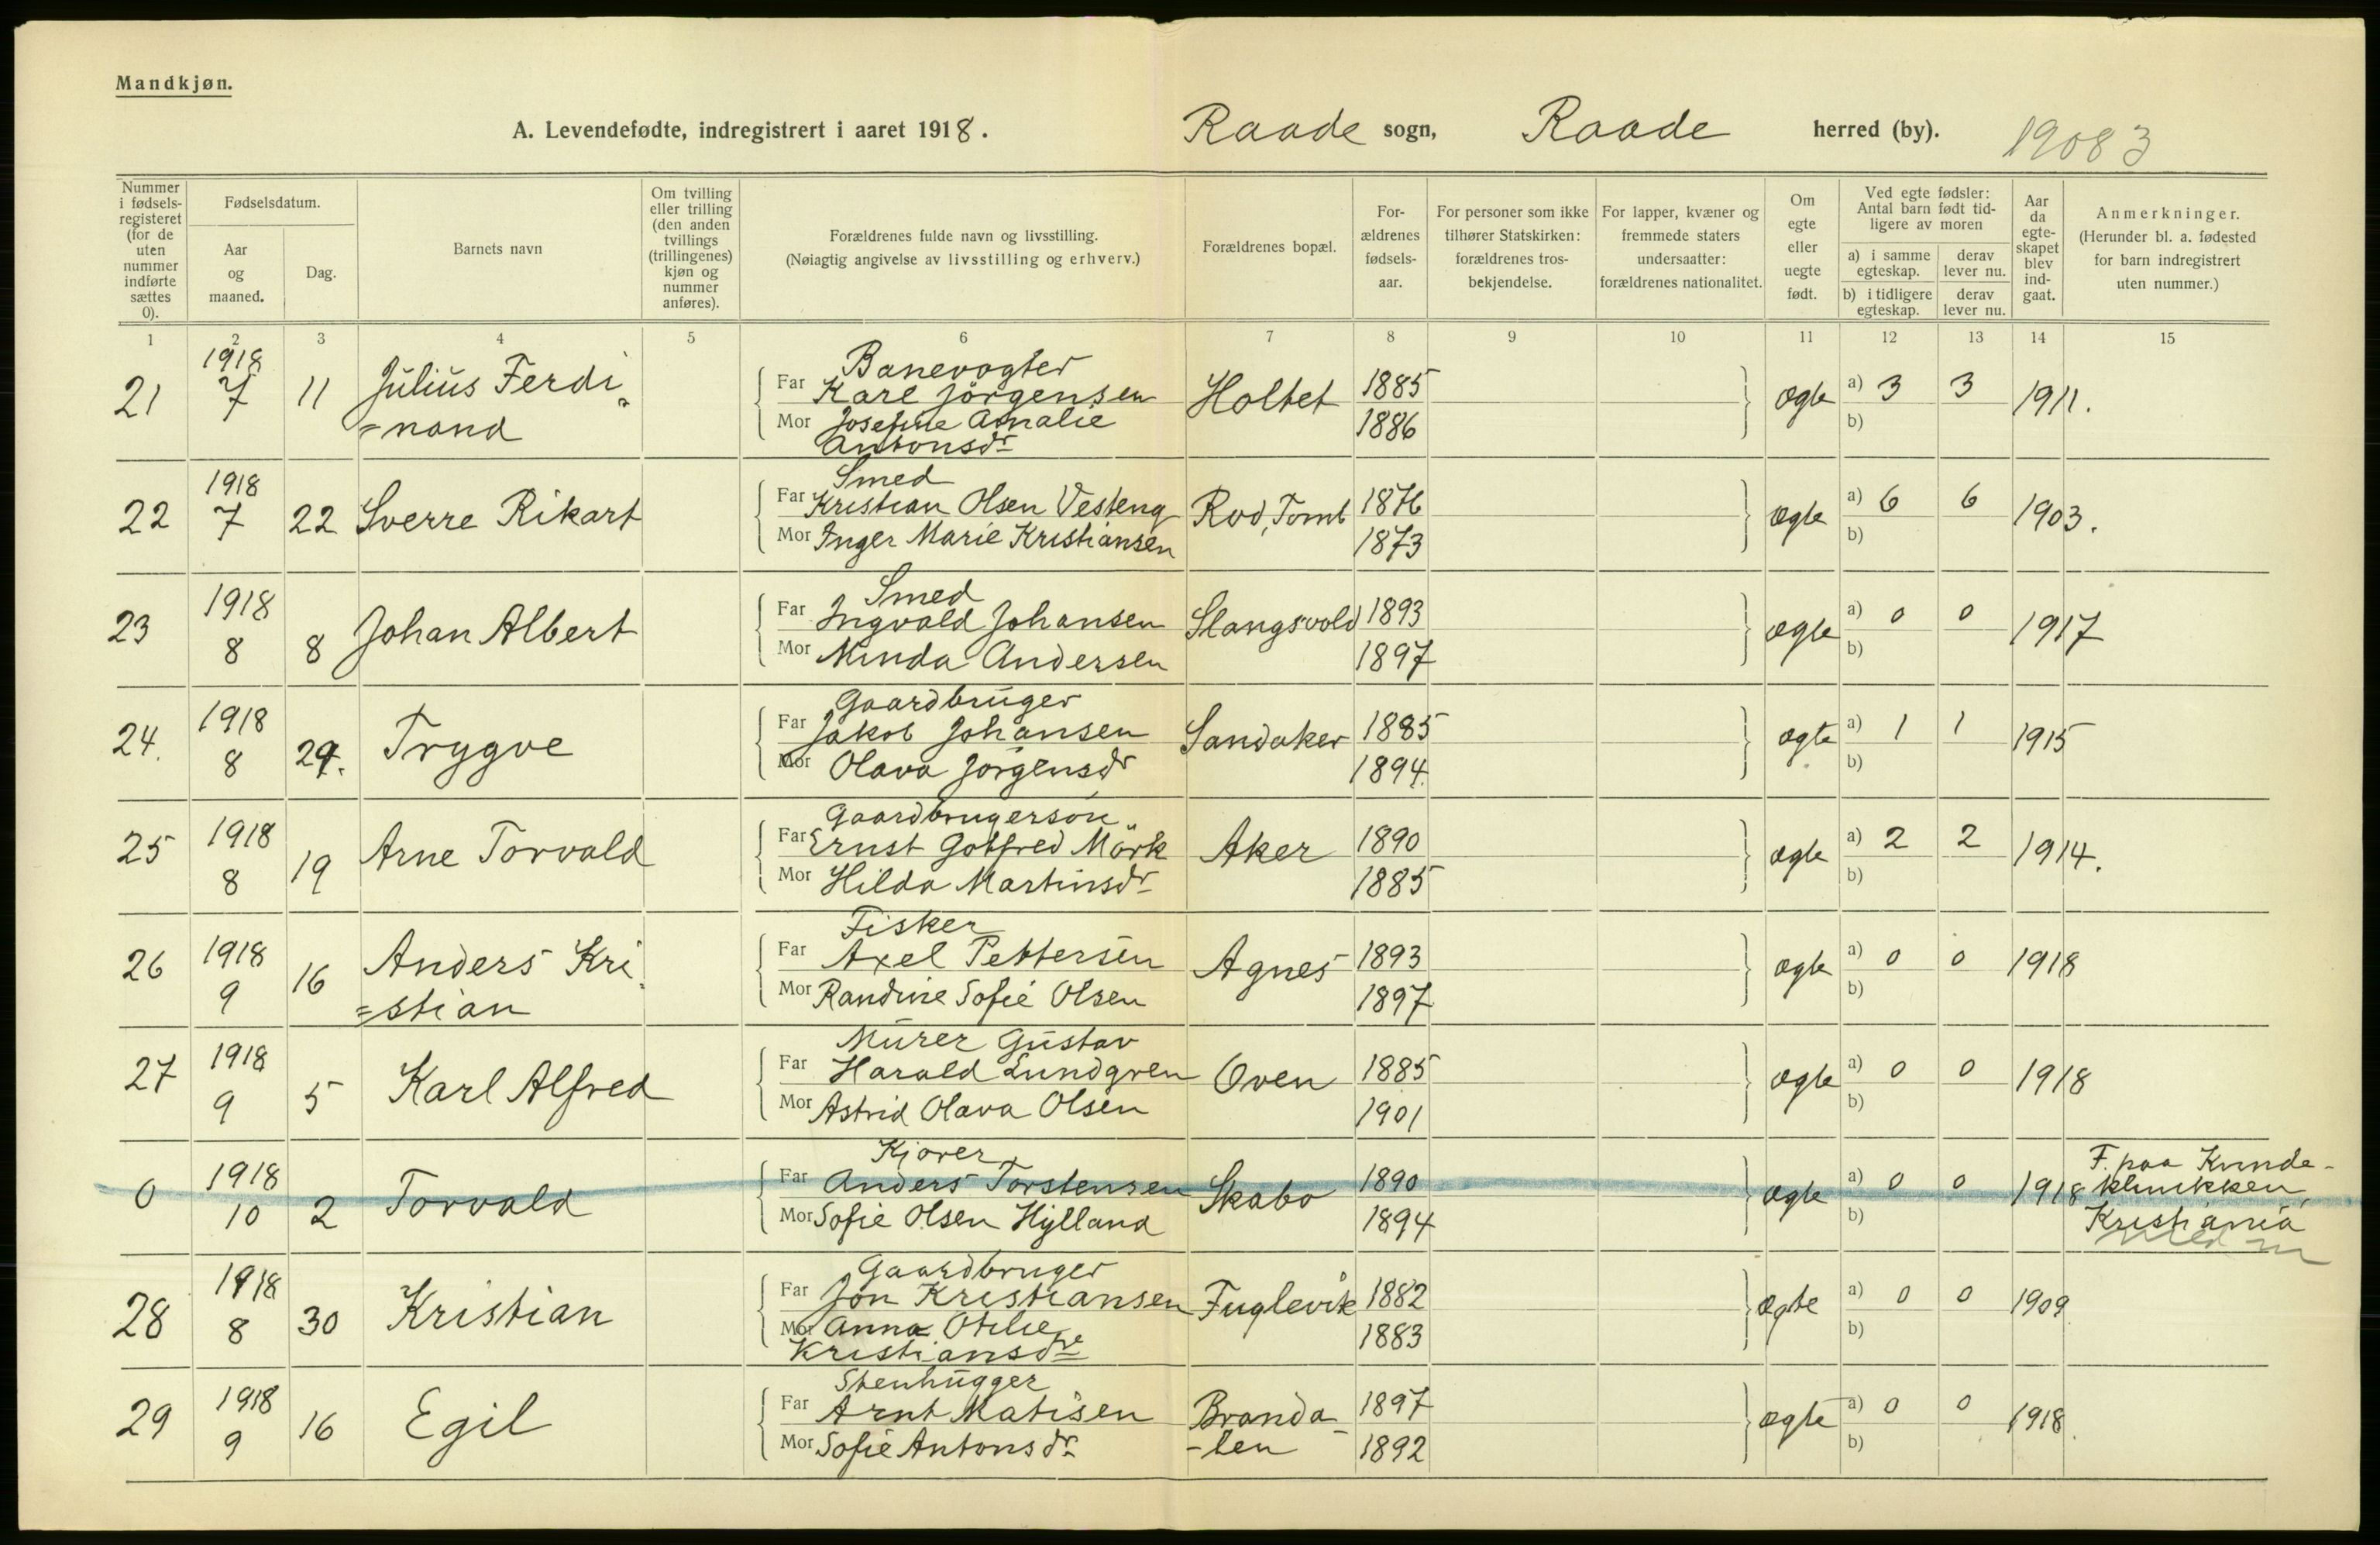 Mandkjøn.
A. Levendefødte, indregistrert i aaret 1918. Raade sogn, Raade herred (by). 19083
Nummer i fødsels-registeret (for de uten nummer indførte sættes 0).
Fødselsdatum.
Aar og maaned.
Dag.
Barnets navn
Om tvilling eller trilling (den anden tvillings (trillingenes) kjøn og nummer anføres).
Forældrenes fulde navn og livsstilling.
(Nøiagtig angivelse av livsstilling og erhverv.)
Forældrenes bopæl.
For-ældrenes fødsels-aar.
For personer som ikke tilhører Statskirken: forældrenes tros-bekjendelse.
For lapper, kvæner og fremmede staters undersaatter: forældrenes nationalitet.
Om egte eller uegte født.
Ved egte fødsler: Antal barn født tid-ligere av moren
a) i samme egteskap. derav lever nu.
b) i tidligere egteskap. derav lever nu.
Aar da egte-skapet blev ind-gaat.
Anmerkninger.
(Herunder bl. a. fødested for barn indregistrert uten nummer.)
1 2 3 4 5 6 7 8 9 10 11 12 13 14 15
1918 Banevogter
21 7 11 Julius Ferdi= Far Karl Jörgensen Holtet 1885 ægte a) 3 3 1911.
=nand Mor Josefine Amalie 1886 b)
Antonsdr
1918 Smed
22 7 22 Sverre Rikart Far Kristian Olsen Vesteng Rød, Tomb 1876 ægte a) 6 6 1903.
Mor Inger Marie Kristiansen 1873 b)
1918 Smed
23 8 8 Johan Albert Far Ingvald Johansen Slangsvold 1893 ægte a) 0 0 1917
Mor Minda Andersen 1897 b)
1918 Gaardbruger
24. 8 29. Trygve Far Jakob Johansen Sandaker 1885 ægte a) 1 1 1915
Mor Olava Jörgensdr 1894. b)
1918 Gaardbrugersön
25 8 19 Arne Torvald Far Ernst Gotfred Mörk Aker 1890 ægte a) 2 2 1914.
Mor Hilda Martinsdr 1885 b)
1918 Fisker
26 9 16 Anders Kri= Far Axel Pettersen Agnes 1893 ægte a) 0 0 1918
=stian Mor Randine Sofie Olsen 1897 b)
1918 Murer Gustav
27 9 5 Karl Alfred Far Harald Lundgren Oven 1885 ægte a) 0 0 1918
Mor Astrid Olava Olsen 1901 b)
1918 Kjører F. paa Kvinde-
0 10 2 Torvald Far Anders Torstensen Skabo 1890 ægte a) 0 0 1918 klinikken,
Mor Sofie Olsen Hylland 1894 b) Kristiania
1918 Gaardbruger
28 8 30 Kristian Far Jon Kristiansen Fuglevik 1882 ægte a) 0 0 1909
Mor Anna Otilie 1883 b)
Kristiansdr
1918 Stenhugger
29 9 16 Egil Far Arnt Matisen Branda- 1897 ægte a) 0 0 1918
Mor Sofie Antonsdr -len 1892 b)